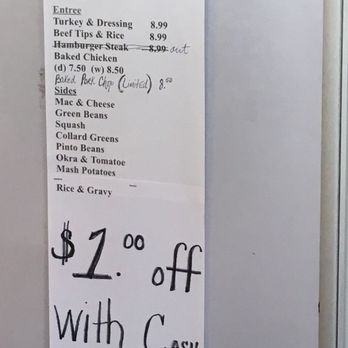 Entree
Turkey & Dressing 8.99
Beef Tips & Rice 8.99
Hamburger Steak 8.99 out
Baked Chicken
(d) 7.50 (w) 8.50
Baked Pork Chop (Limited) 8.50
Sides
Mac & Cheese
Green Beans
Squash
Collard Greens
Pinto Beans
Okra & Tomatoe
Mash Potatoes
Rice & Gravy
$1.00 off
With Cash